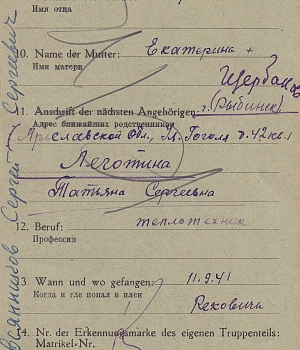 Имя отца
10. Name der Mutter: Екатерина +
Имя матери
Щербаков
11. Anschrift der nächsten Angehörigen: г. (Рыбинск)
Адрес ближайших родственников
(Ярославской Обл, Гоголя д. 42 кв. 1
Леготина
Татьяна Сергеевна
12. Beruf: теплотехник
Профессия
13 Wann und wo gefangen: 11.9.41
Когда и где попал в плен
14. Nr. der Erkennungsmarke des eigenen Truppenteils:
Matrikel-Nr.
Сергей Сергеевич